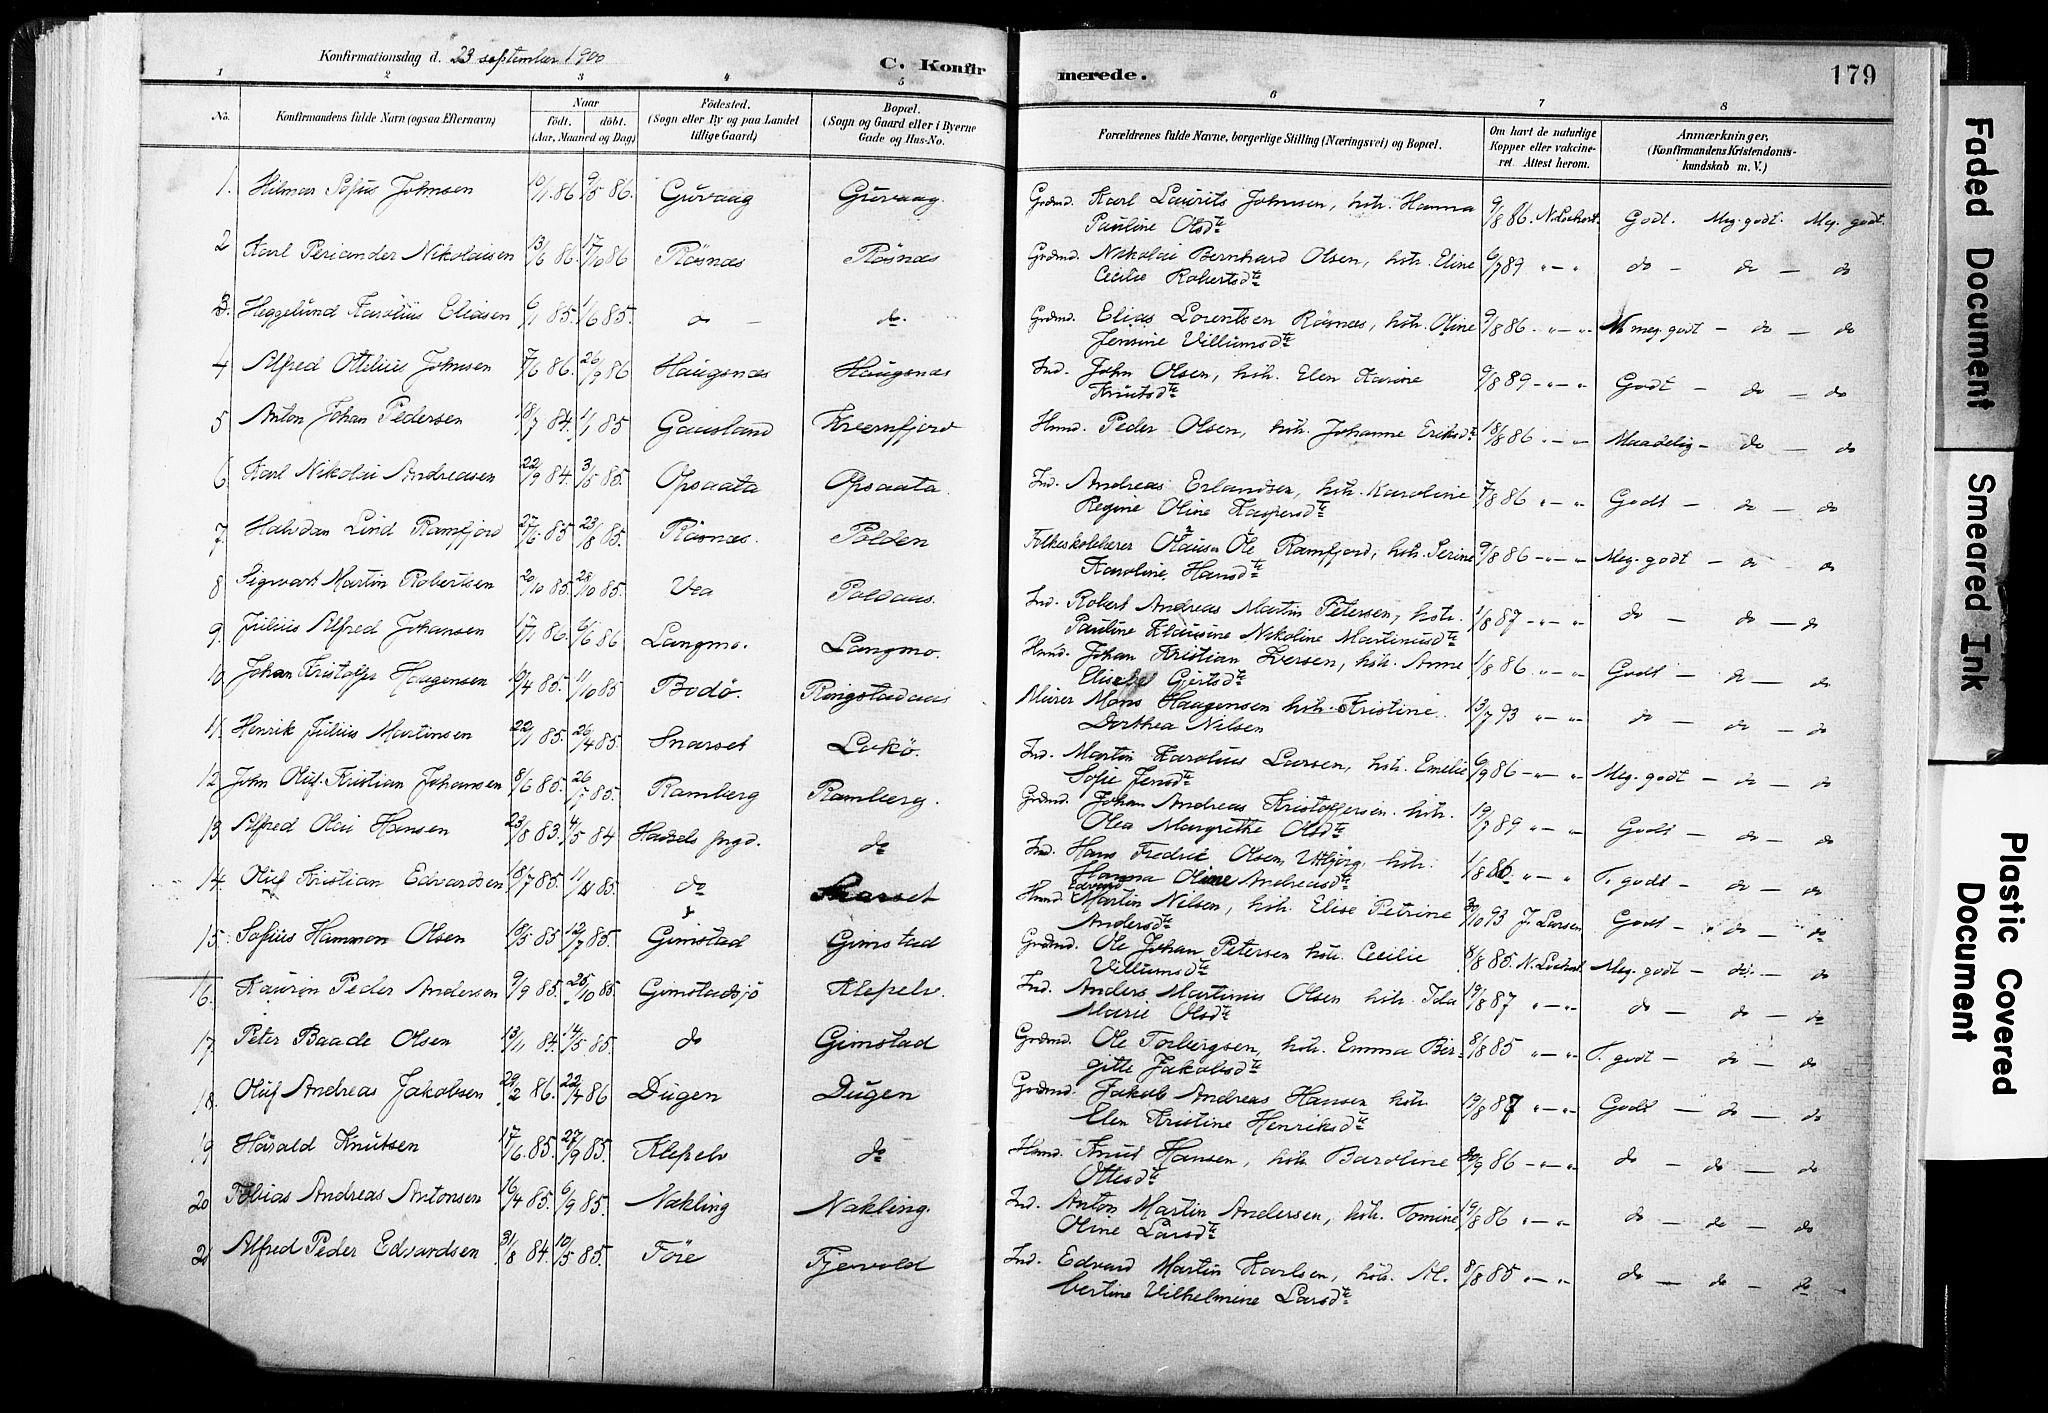 Konfirmationsdag d. 23 september 1900
C. Konfirmerede.
179
1 2 3 4 5 6 7 8
No.
Konfirmandens fulde Navn (ogsaa Efternavn)
Naar
födt. döbt.
(Aar, Maaned og Dag)
Födested.
(Sogn eller By og paa Landet
tillige Gaard)
Bopæl.
(Sogn og Gaard eller i Byerne
Gade og Hus-No.
Forældrenes fulde Navne, borgerlige Stilling (Næringsvei) og Bopæl.
Om havt de naturlige
Kopper eller vakcine-
ret. Attest herom.
Anmærkninger.
(Konfirmandens Kristendoms-
kundskab m. V.)
1. Hilmar Sofus Johnsen 10/1 86 9/5 86. Guvaag Guvaag. Grdmd. Karl Laurits Johnsen, hstr. Hanna 9/8 86. Godt. Meg. godt. Meg. godt.
Pauline Olsdtr
2 Karl Periander Nikolaisen 13/6 86. 17/10 86 Rösnæs Rösnæs Grdmd. Nikolai Bernhard Olsen, hstr. Eline 6/7 89 " — " do — do — do
Cecilie Robertsdtr
3. Heggelund Karolius Eliasen 6/1 85. 1/6 85. do — do. Grdmd. Elias Lorentsen Rösnæs, hstr. Oline 9/8 86 - " - " meg. godt — do — do
Jensine Villumsdtr
4 Alfred Ottelius Johnsen 7/6 86. 26/9 86 Haugsnæs Haugsnæs Ind. John Olsen, hstr. Elen Karine 9/8 89 - " - " Godt — do — do
Knutsdtr
5 Anton Johan Pedersen 18/7 84. 1/1 85 Gaasland Kvernfjord Hmd. Peder Olsen, hstr. Johanne Eriksdtr 18/8 86 - " - " Maadelig — do — do
6. Karl Nikolai Andreasen 22/9 84. 3/5 85. Opsaata Opsaata. Ind. Andreas Erlandsen, hstr. Karoline 7/8 86 " — " Godt — do — do
Regine Oline Kaspersdtr
7. Halvdan Lind Ramfjord 27/6 85 23/8 85. Rösnæs. Polden Folkeskolelærer Olaus Ole Ramfjord, hstr. Serine 9/8 86 - " - " Meg. godt — do do
Karoline Hansdtr
8 Sigvart Martin Robertsen 20/10 85. 28/10 85. Vea Poldaas. Ind. Robert Andreas Martin Petersen, hstr. 1/8 87 - " - " do — do — do
Pauline Klausine Nikoline Martinusdtr
9. Julius Alfred Johansen 17/1 86. 6/6 86 Langmo. Langmo. Hmd. Johan Kristian Iversen, hstr. Anne 1/8 86 " — " Godt — do — do
Gjertsdtr
10. Johan Kristoffer Haugensen 19/4 85. 11/10 85 Bodö. Ringstadaas Murer Mons Haugensen hstr. Kristine 13/7 93 " — " do — do — do
Dorthea Nilsen
11. Henrik Julius Martinsen 22/1 85. 26/4 85. Snarset Lakö. Ind. Martin Karolius Larsen, hstr. Emelie 6/9 86 - " - " Meg. godt — do — do
Sofie Jensdtr
12 John Oluf Kristian Johansen 8/6 85. 26/7 85. Ramberg Ramberg. Grdmd. Johan Andreas Kristoffersen hstr. 19/7 89 " — " Godt — do — do
Olea Margrethe Olsdtr
13. Alfred Olai Hansen 23/8 83. 4/5 84 Hadsels prgd. do Ind. Hans Fredrik Olsen, hstr. 1/8 86. " — " T. godt — do — do
Hanna Oline Andreasdtr
14. Oluf Kristian Edvardsen 18/7 85. 11/11 85. do Snarset Hmd. Edvard Martin Nilsen, hstr. Elise Petrine 30/10 93 J. Larsen Godt — do — do
Andersdtr
15. Sofius Hammon Olsen 19/5 85 12/7 85. Gimstad Gimstad Grdmd. Ole Johan Petersen hstr. Cecilie 8/8 85. Meg. godt — do. — do
Villumsdtr
16. Kaurin Peder Andersen 9/9 85. 25/10 85. Gimstadsjö Klepelv. Ind. Anders Martinus Olsen hstr. Ida 19/8 87 " — " do — do — do
Marie Olsdtr
17. Peter Baade Olsen 13/11 84. 14/5 85. do Gimstad Grdmd. Ole Torbergsen, hstr. Emma Bir- 8/8 85 " — " T. godt — do — do
gitte Jakobsdtr
18. Oluf Andreas Jakobsen 29/2 86. 22/4 86 Dugen Dugen Grdmd. Jakob Andreas Hansen hstr. 19/8 87 " — " Godt — do — do
Elen Kristine Henriksdtr
19 Harald Knutsen 17/6. 85. 27/9 85. Klepelv do Hmd. Knud Hansen, hstr. Baroline 20/9 86 - " - " do — do — do
Ottesdtr
20 Tobias Andreas Antonsen 16/4 85. 6/9 85. Nakling Nakling. Ind. Anton Martin Andersen, hstr. Tomine 19/8 86 " — " do — do — do
Oline Larsdtr
21 Alfred Peder Edvardsen 31/8 84. 10/5 85. Före Fjervold Ind. Edvard Martin Karlsen, hstr. Al- 8/8 85 " — " do — do — do
bertine Vilhelmine Larsdtr
Faded Document
Smeared Ink
Plastic Covered
Document